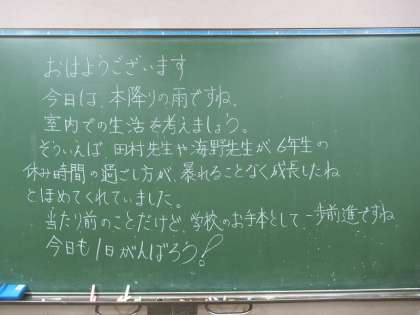 おはようございます
今日は、本降りの雨ですね。
室内での生活を考えましょう。
そういえば、田村先生や海野先生が、6年生の
休み時間の過ごし方が、暴れることなく成長したね
とほめてくれていました。
当たり前のことだけど、学校のお手本として、一歩前進ですね
今日も1日がんばろう!